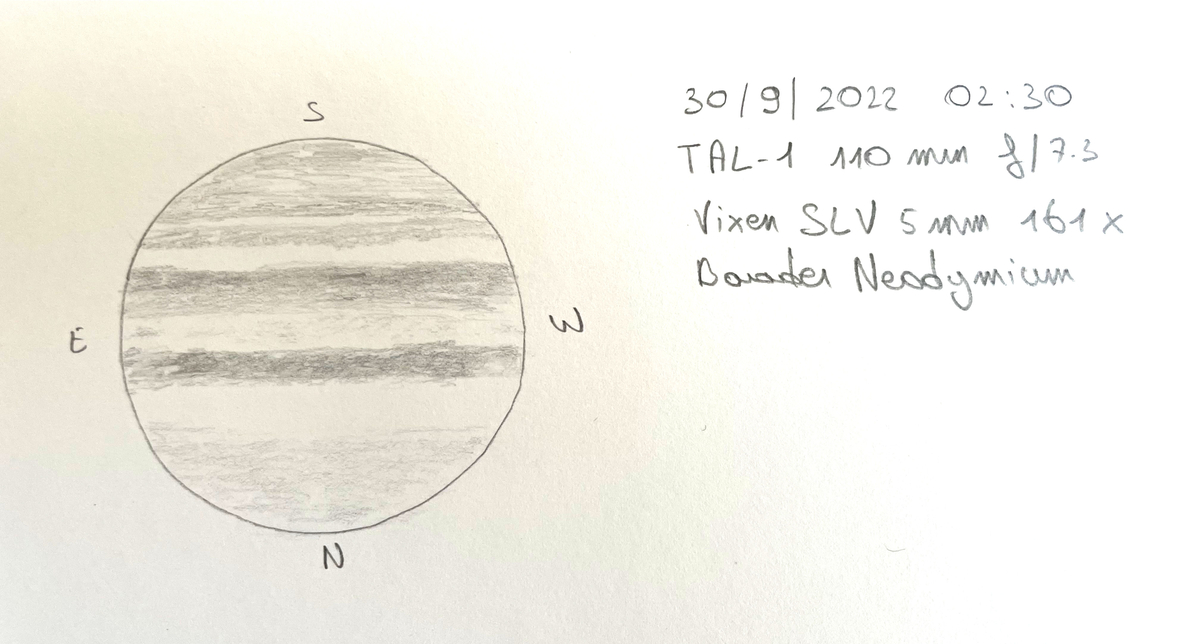 S
E
W
N
30/9/2022 02:30
TAL-1 110 mm f/7.3
Vixen SLV 5mm 161x
Baader Neodymium